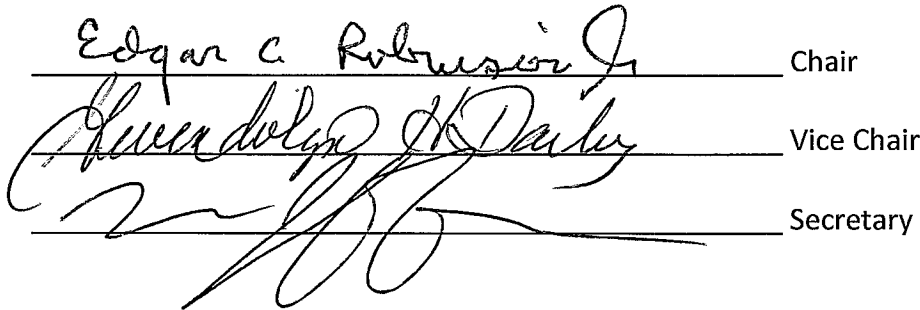 Edgar C. Robinson Jr Chair
Gwendolyn H. Dailey Vice Chair
Secretary